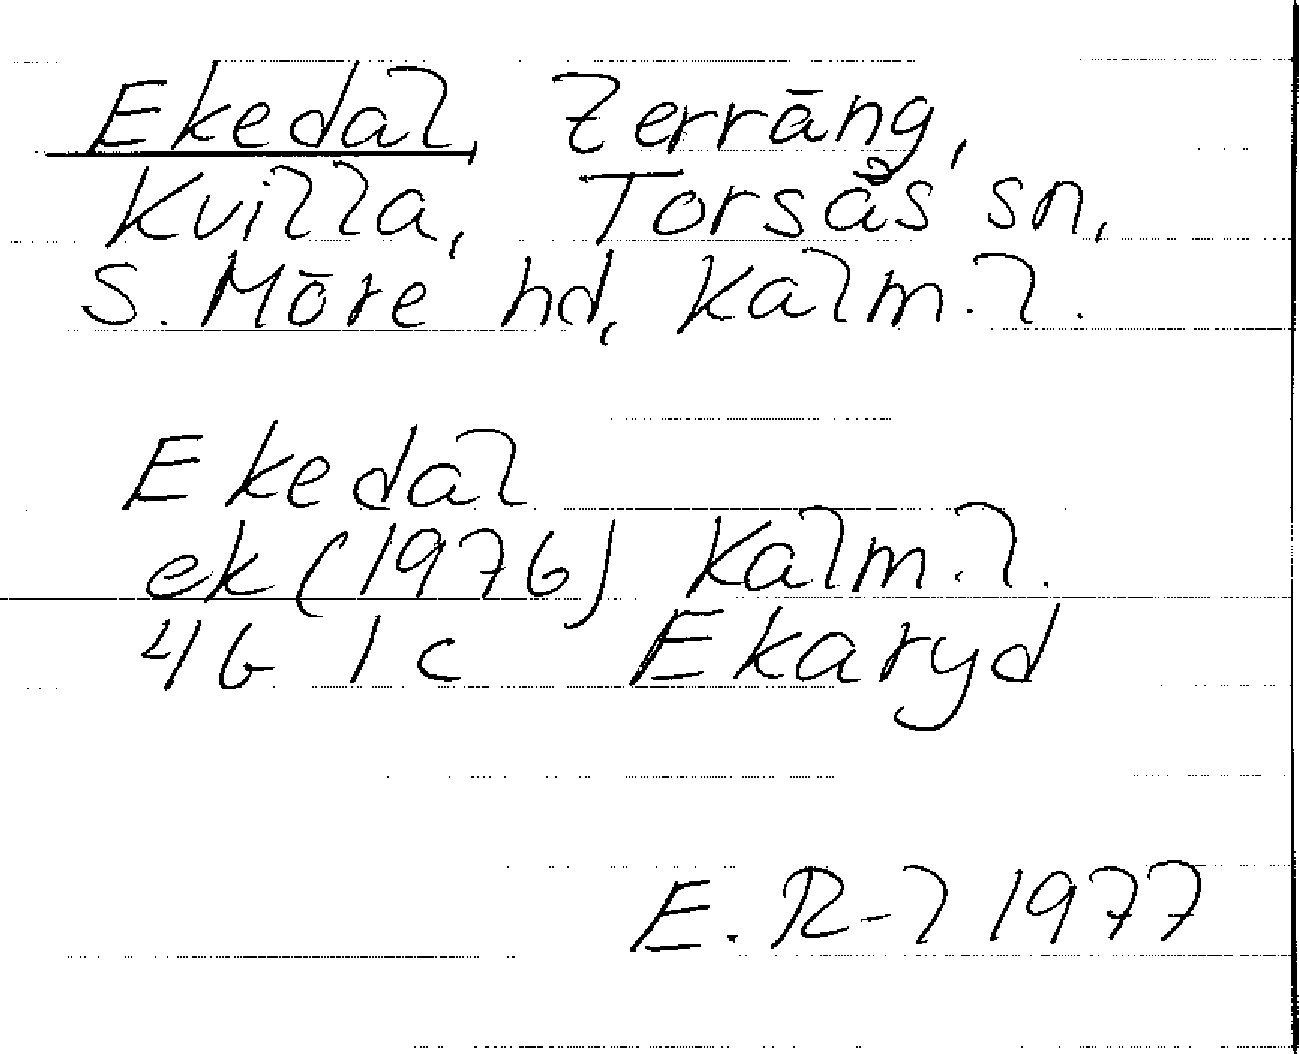 Ekedal, terräng,
Kvilla, Torsås sn,
S. Möre hd, Kalm. l.
Ekedal
ek (1976) Kalm. l.
4G 1c Ekaryd
E. R-l 1977